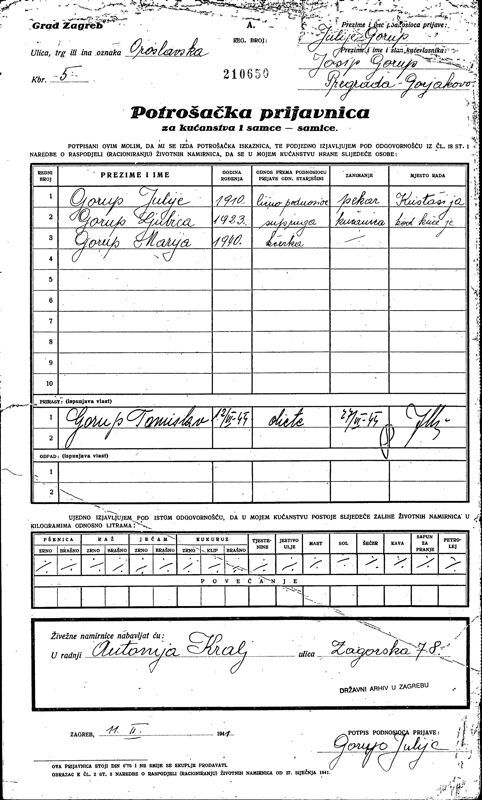 Grad Zagreb
A.
REG. BROJ:
210650
Prezime i ime podnosioca prijave:
Julije Gorup
Ulica, trg ili ina oznaka Oroslavska
Prezime i ime i stan kućevlasnika:
Josip Gorup
Kbr. 5
Pregrada-Gorjakovo
Potrošačka prijavnica
za kućanstva i samce — samice.
POTPISANI OVIM MOLIM, DA MI SE IZDA POTROŠAČKA ISKAZNICA, TE PODJEDNO IZJAVLJUJEM POD ODGOVORNOŠĆU IZ ČL. 18 ST. 1
NAREDBE O RASPODJELI (RACIONIRANJU) ŽIVOTNIH NAMIRNICA, DA SE U MOJEM KUĆANSTVU HRANE SLIJEDEĆE OSOBE:
REDNI BROJ PREZIME I IME GODINA ROĐENJA ODNOS PREMA PODNOSIOCU PRIJAVE ODN. STARJEŠINI ZANIMANJE MJESTO RADA
1 Gorup Julije 1910. lično podnosioc pekar Kustošija
2 Gorup Ljubica 1923. supruga kućanica kod kuće je
3 Gorup Marija 1940. kćerka —
4
5
6
7
8
9
10
PRIRAST: (ispunjava vlast)
1 Gorup Tomislav 12/III-44 diete 27/III-44
2
OTPAD: (ispunjava vlast)
1
2
UJEDNO IZJAVLJUJEM POD ISTOM ODGOVORNOŠĆU, DA U MOJEM KUĆANSTVU POSTOJE SLIJEDEĆE ZALIHE ŽIVOTNIH NAMIRNICA U
KILOGRAMIMA ODNOSNO LITRAMA:
PŠENICA RAŽ JEČAM KUKURUZ TJESTENINE JESTIVO ULJE MAST SOL ŠEĆER KAVA SAPUN ZA PRANJE PETROLEJ
ZRNO BRAŠNO ZRNO BRAŠNO ZRNO BRAŠNO ZRNO KLIP BRAŠNO
POVEĆANJE
Živežne namirnice nabavljat ću:
U radnji Antonija Kralj ulica Zagorska 78.
DRŽAVNI ARHIV U ZAGREBU
ZAGREB, 11. II. 1941
POTPIS PODNOSIOCA PRIJAVE:
Gorup Julije
OVA PRIJAVNICA STOJI DIN 0'75 I NE SMIJE SE SKUPLJE PRODAVATI.
OBRAZAC K ČL. 2 ST. 5 NAREDBE O RASPODJELI (RACIONIRANJU) ŽIVOTNIH NAMIRNICA OD 27. SIJEČNJA 1941.